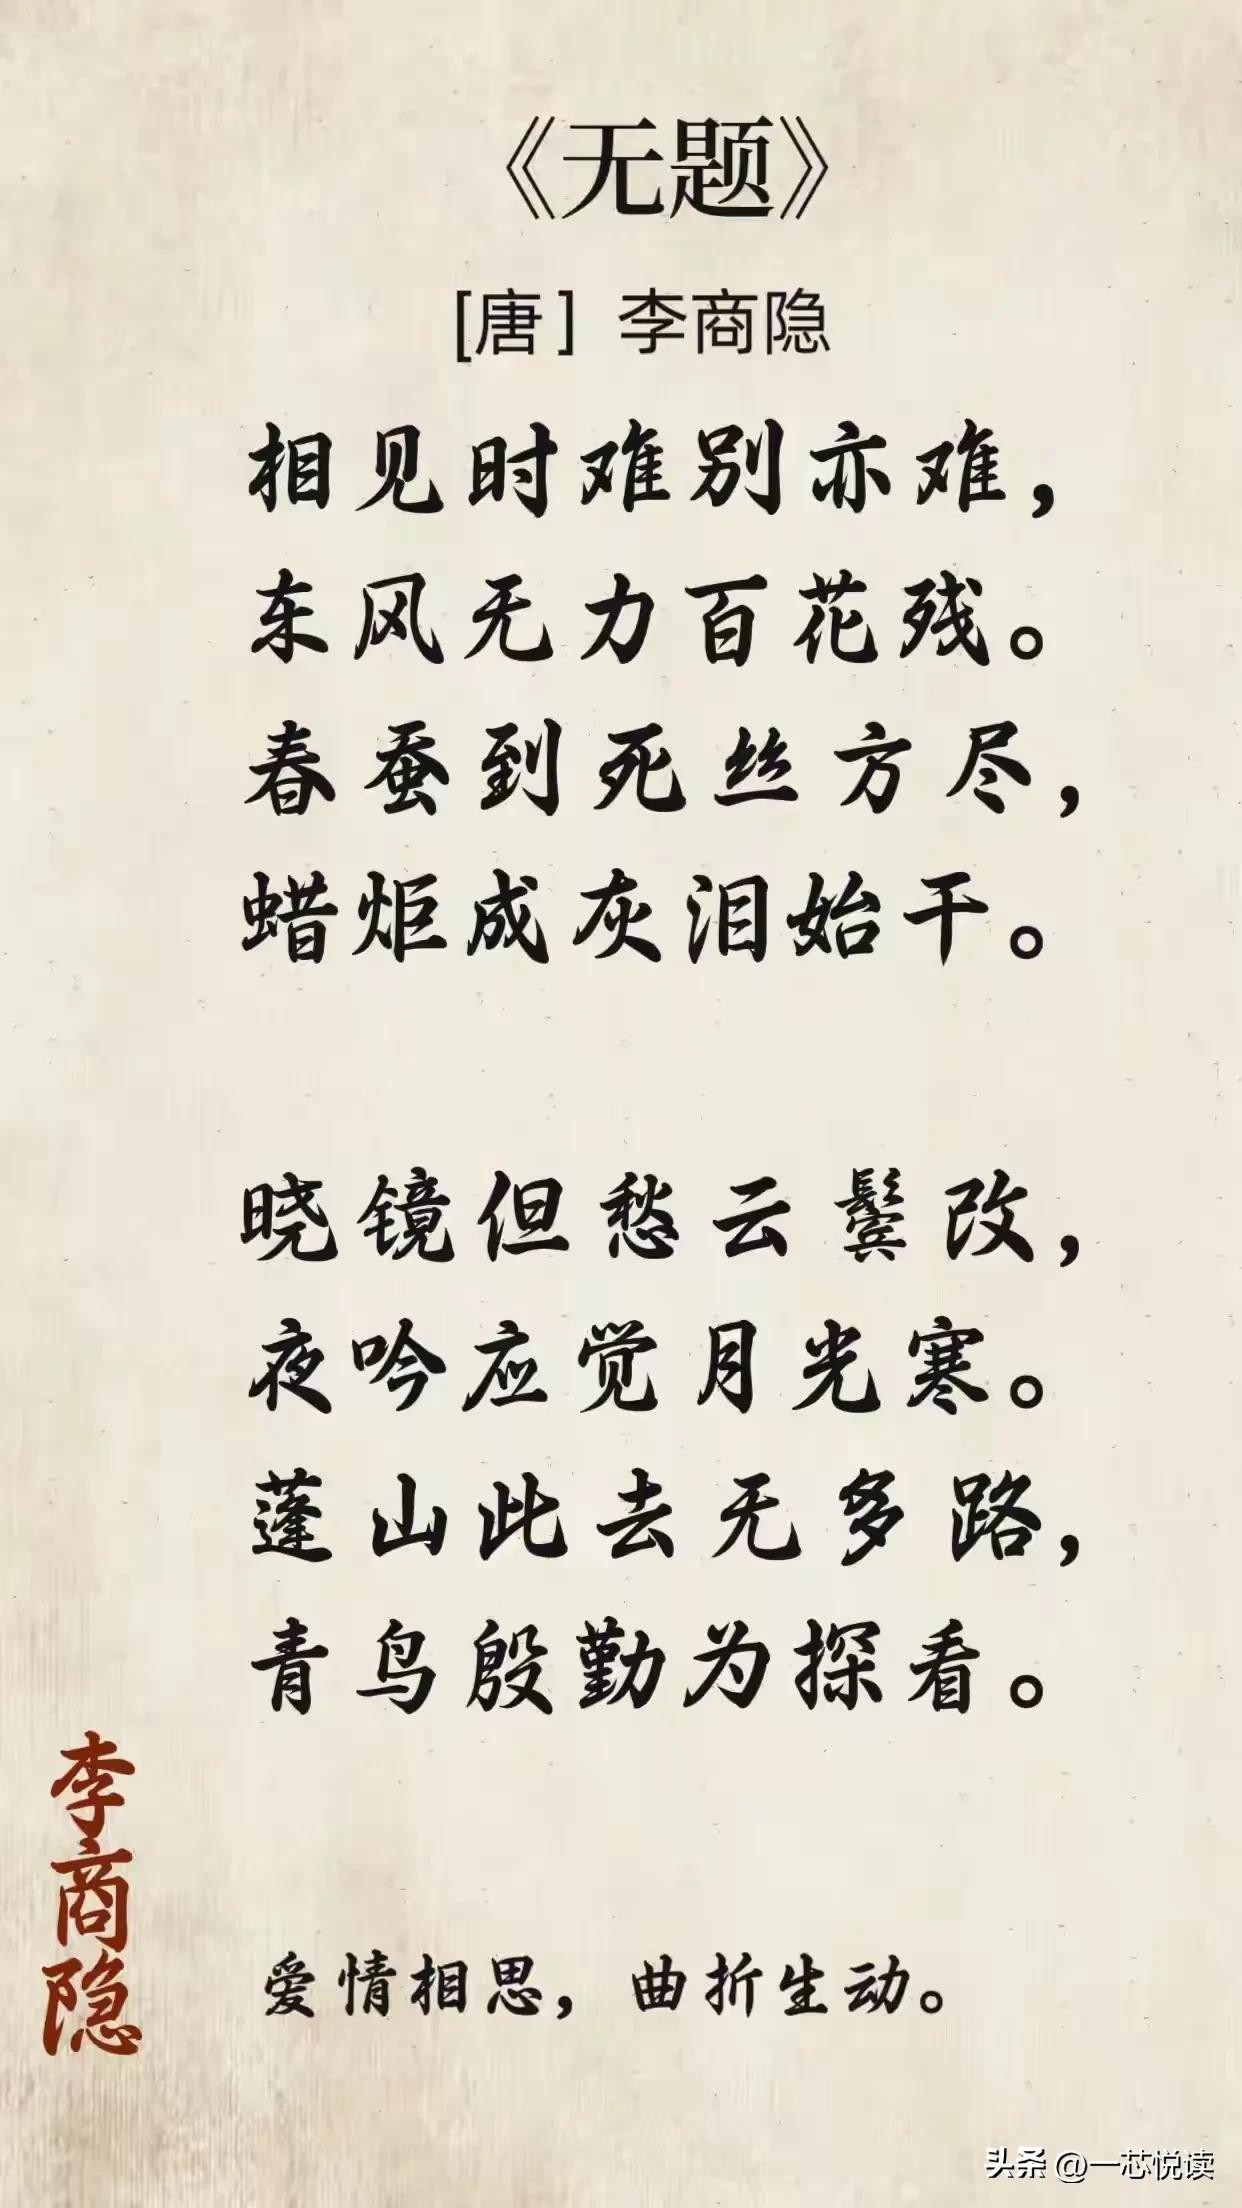 《无题》
[唐] 李商隐
相见时难别亦难，
东风无力百花残。
春蚕到死丝方尽，
蜡炬成灰泪始干。
晓镜但愁云鬓改，
夜吟应觉月光寒。
蓬山此去无多路，
青鸟殷勤为探看。
李商隐
爱情相思，曲折生动。
头条 @一芯悦读